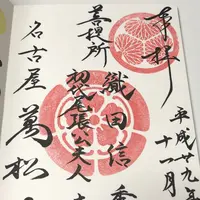 奉拝
平成廿九年
十一月
織田信秀
菩提所
初代尾張公夫人
名古屋
萬松